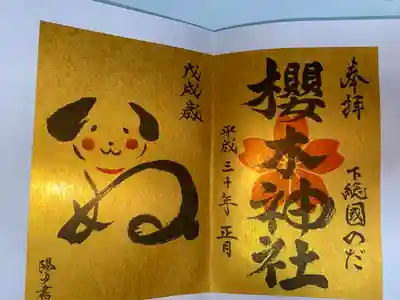 奉拝
下総國のだ
櫻木神社
平成三十年 正月
戊戌歳
いぬ
陽山書